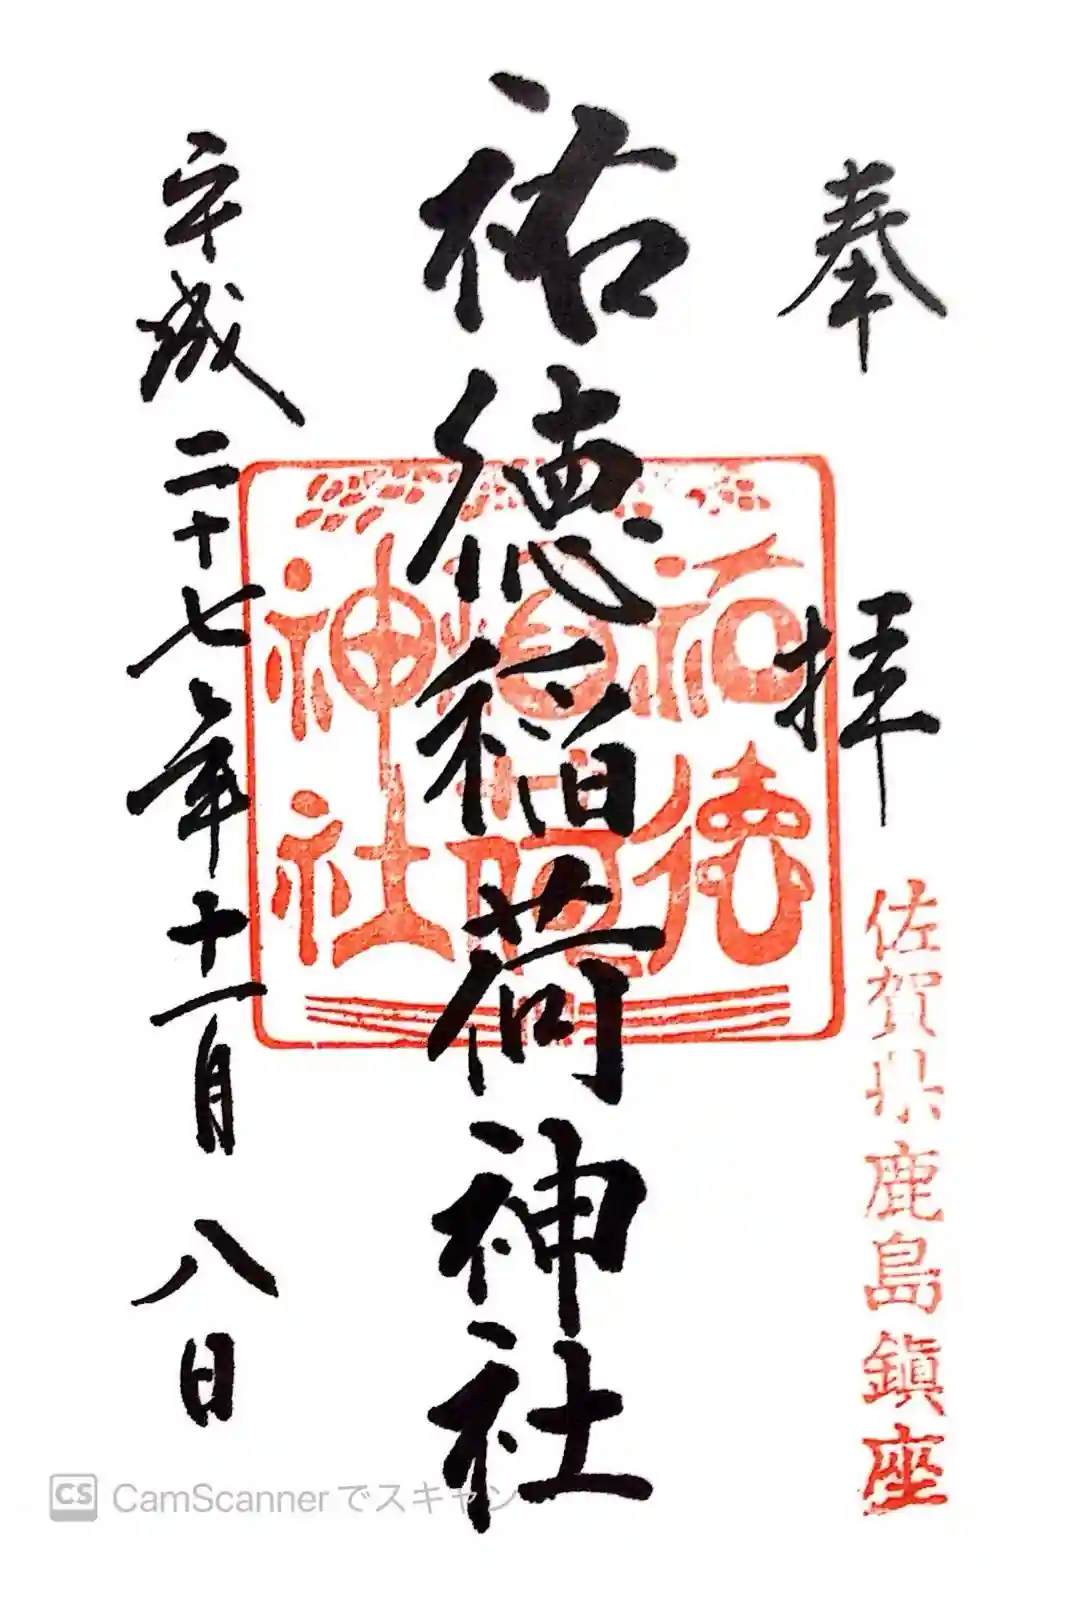 奉拝
佐賀県鹿島鎮座
祐徳稲荷神社
祐徳
稲荷
神社
平成二十七年十一月八日
CS CamScannerでスキャン